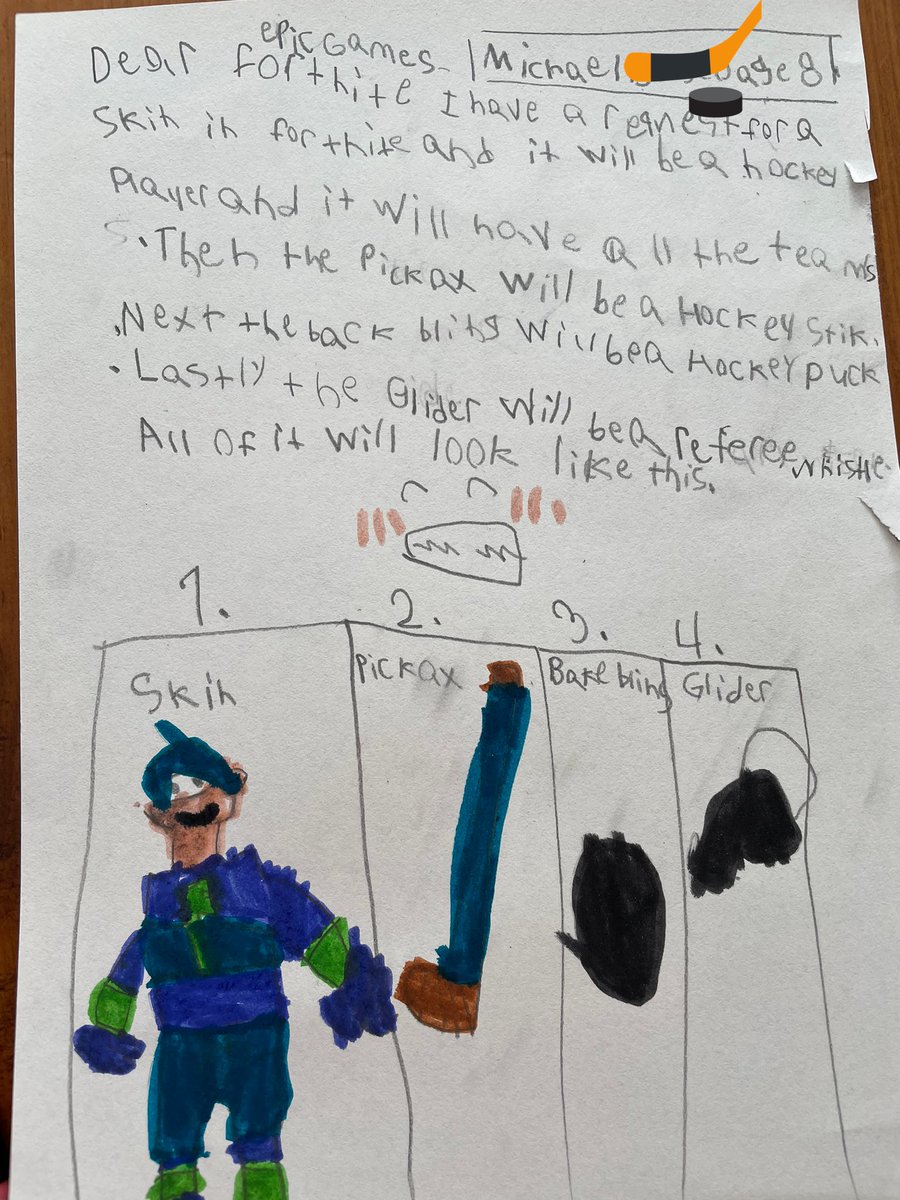 epic Games
Michael age 8
Dear fortnite I have a request for a
Skin in fortnite and it will be a hockey
Player and it will have all the teams
. Then the Pickax will be a Hockey Stik.
. Next the back bling will be a Hockey puck
. Lastly the Glider will be a referee whistle
All of it will look like this.
1. 2. 3. 4.
Skin Pickax Bake bling Glider